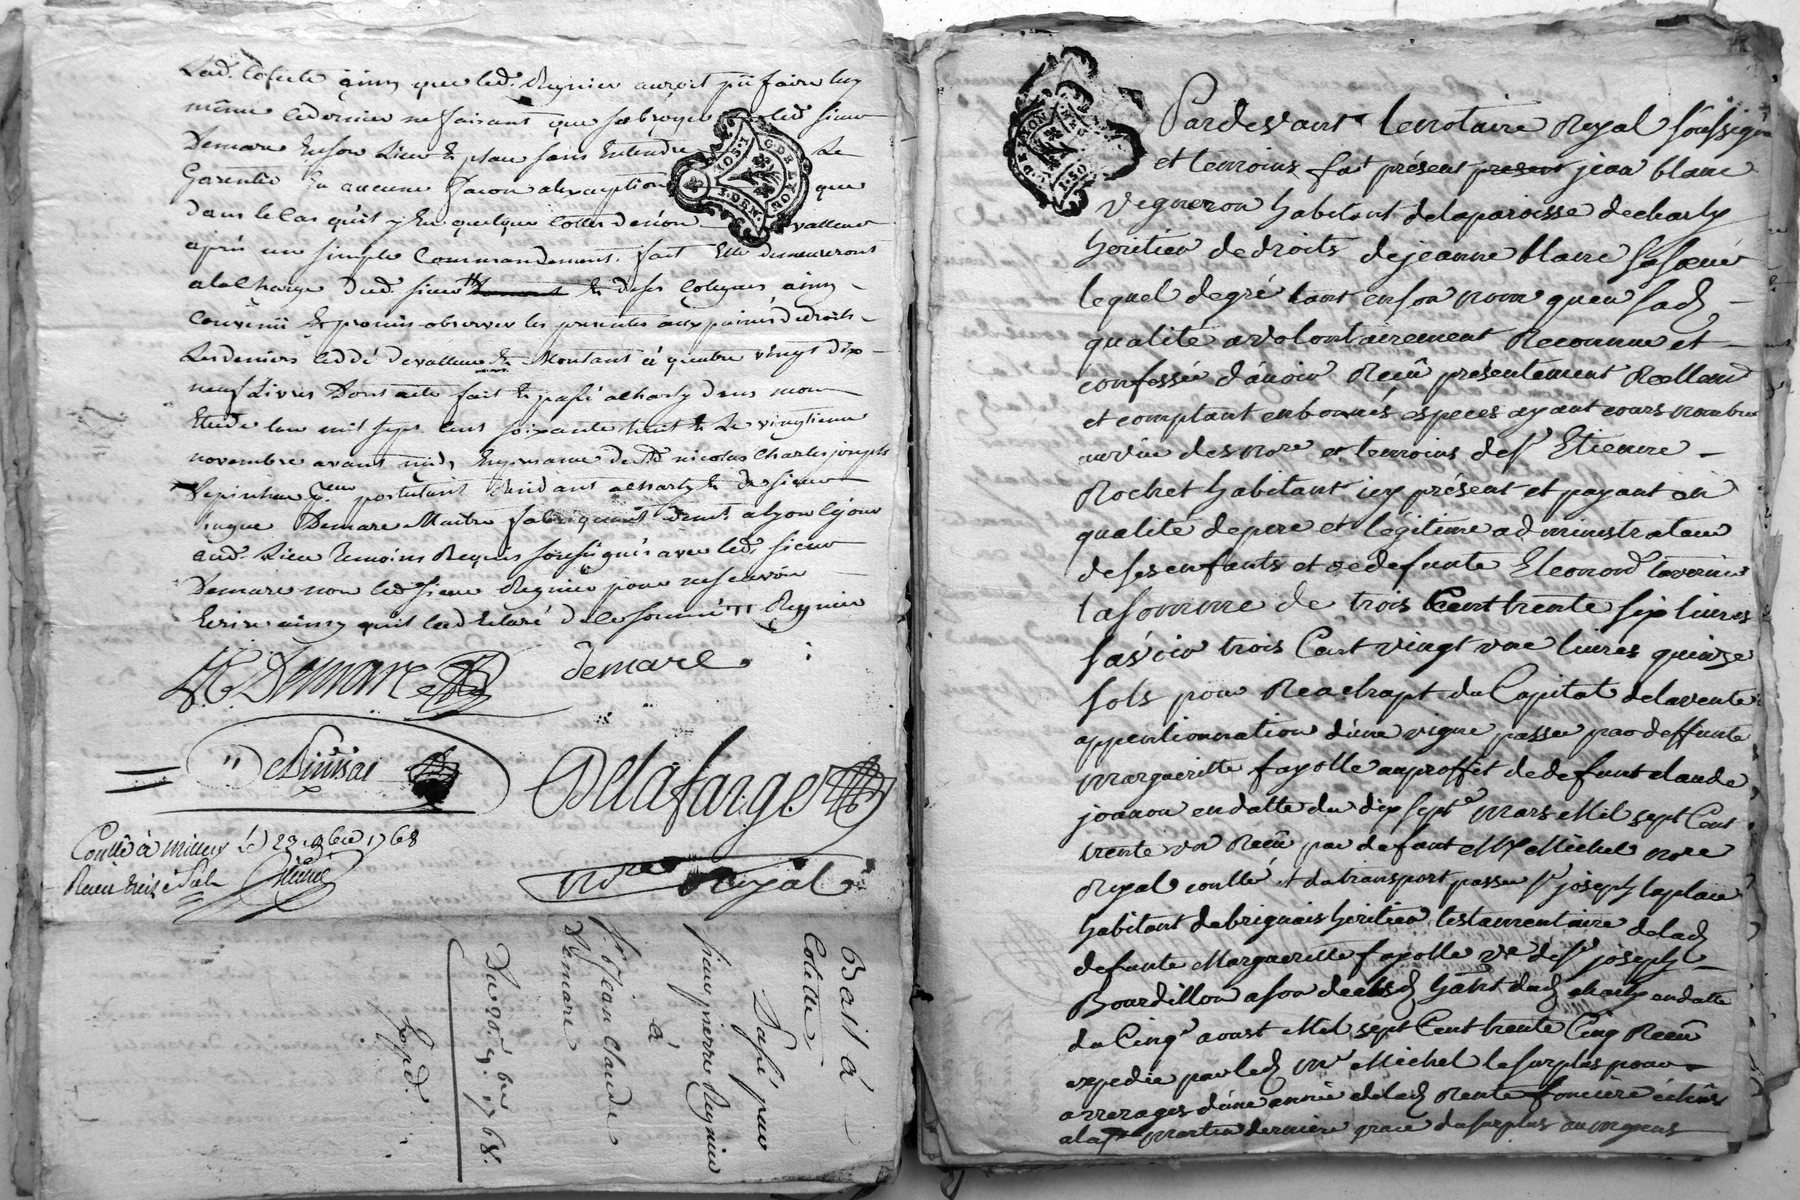 même ce dernier ne faisant que subroger led. sieur
Demare en son Lieu & place sans entendre Le
Garentir en aucune façon a l'exception que
dans le Cas qu'il y eu quelque
après un simple Commandement fait Elle demeureront
a la Charge dud. sieur & de ses
Convenü & promis observer les presentes aux peines de droits
neuf Livres Dont acte fait & passé a Charly dans mon
Etude l'an mil sept cent soixante huit & Le vingtieme
novembre avant midy En presence de Me nicolas Charles joseph
postulant Residant a Charly & de sieur
hugue Demare Maitre fabriquant demt a Lyon
aud. Lieu temoins Requis soussignés avec led. sieur
Demare non led sieur Regnier pour ne scavoir
Ecrire ainsy qu'il l'a declaré de ce sommé Regnier
Demare demare
Delafarge
Nore Royal
Conllé à millery le 23 9bre 1768
Bail à
Passé par
sieur pierre Regnier
à
Sr Jean Claude
Demare
Du 20 9bre 1768.
Pardevant le notaire Royal soussigné
et temoins fut présent present jean blanc
vigneron habitant de la paroisse de charly
heritier de droits de jeanne blanc sa soeur
lequel de gré tant en son nom qu'en sad
qualité a volontairement Reconnu et
confessée d'avoir Reçû présentement Reellemt
et comptant en bonnes especes ayant cours nombré
au vüe des nore et temoins de sr Etienne
Rochet habitant icy présent et payant en
qualité de pere et légitime administrateur
de ses enfants et de defunte Eleonord
la somme de trois Cent trente six livres
sçavoir trois Cent vingt une livres quinze
sols pour Reachapt du Capital de la vente
appentionnation d'une vigne passée par deffunte
margueritte fayolle au proffit de defunt claude
joanon en datte du dix sept mars Mil sept Cent
trente un Reçû par defunt Me Michel nore
Royal conllé et du transport passé sr joseph laplace
habitant de brignais heritier testamentaire de lad
defunte Margueritte fayolle ve de sr joseph
Bourdillon a son decès habt dud charly en datte
du Cinq aoust Mil sept Cent trente Cinq Reçû
expedié par led Me Michel le surplus pour
arrerages d'une année de lad Rente fonciere échüe
a la st Martin derniere grace du surplus au moyens